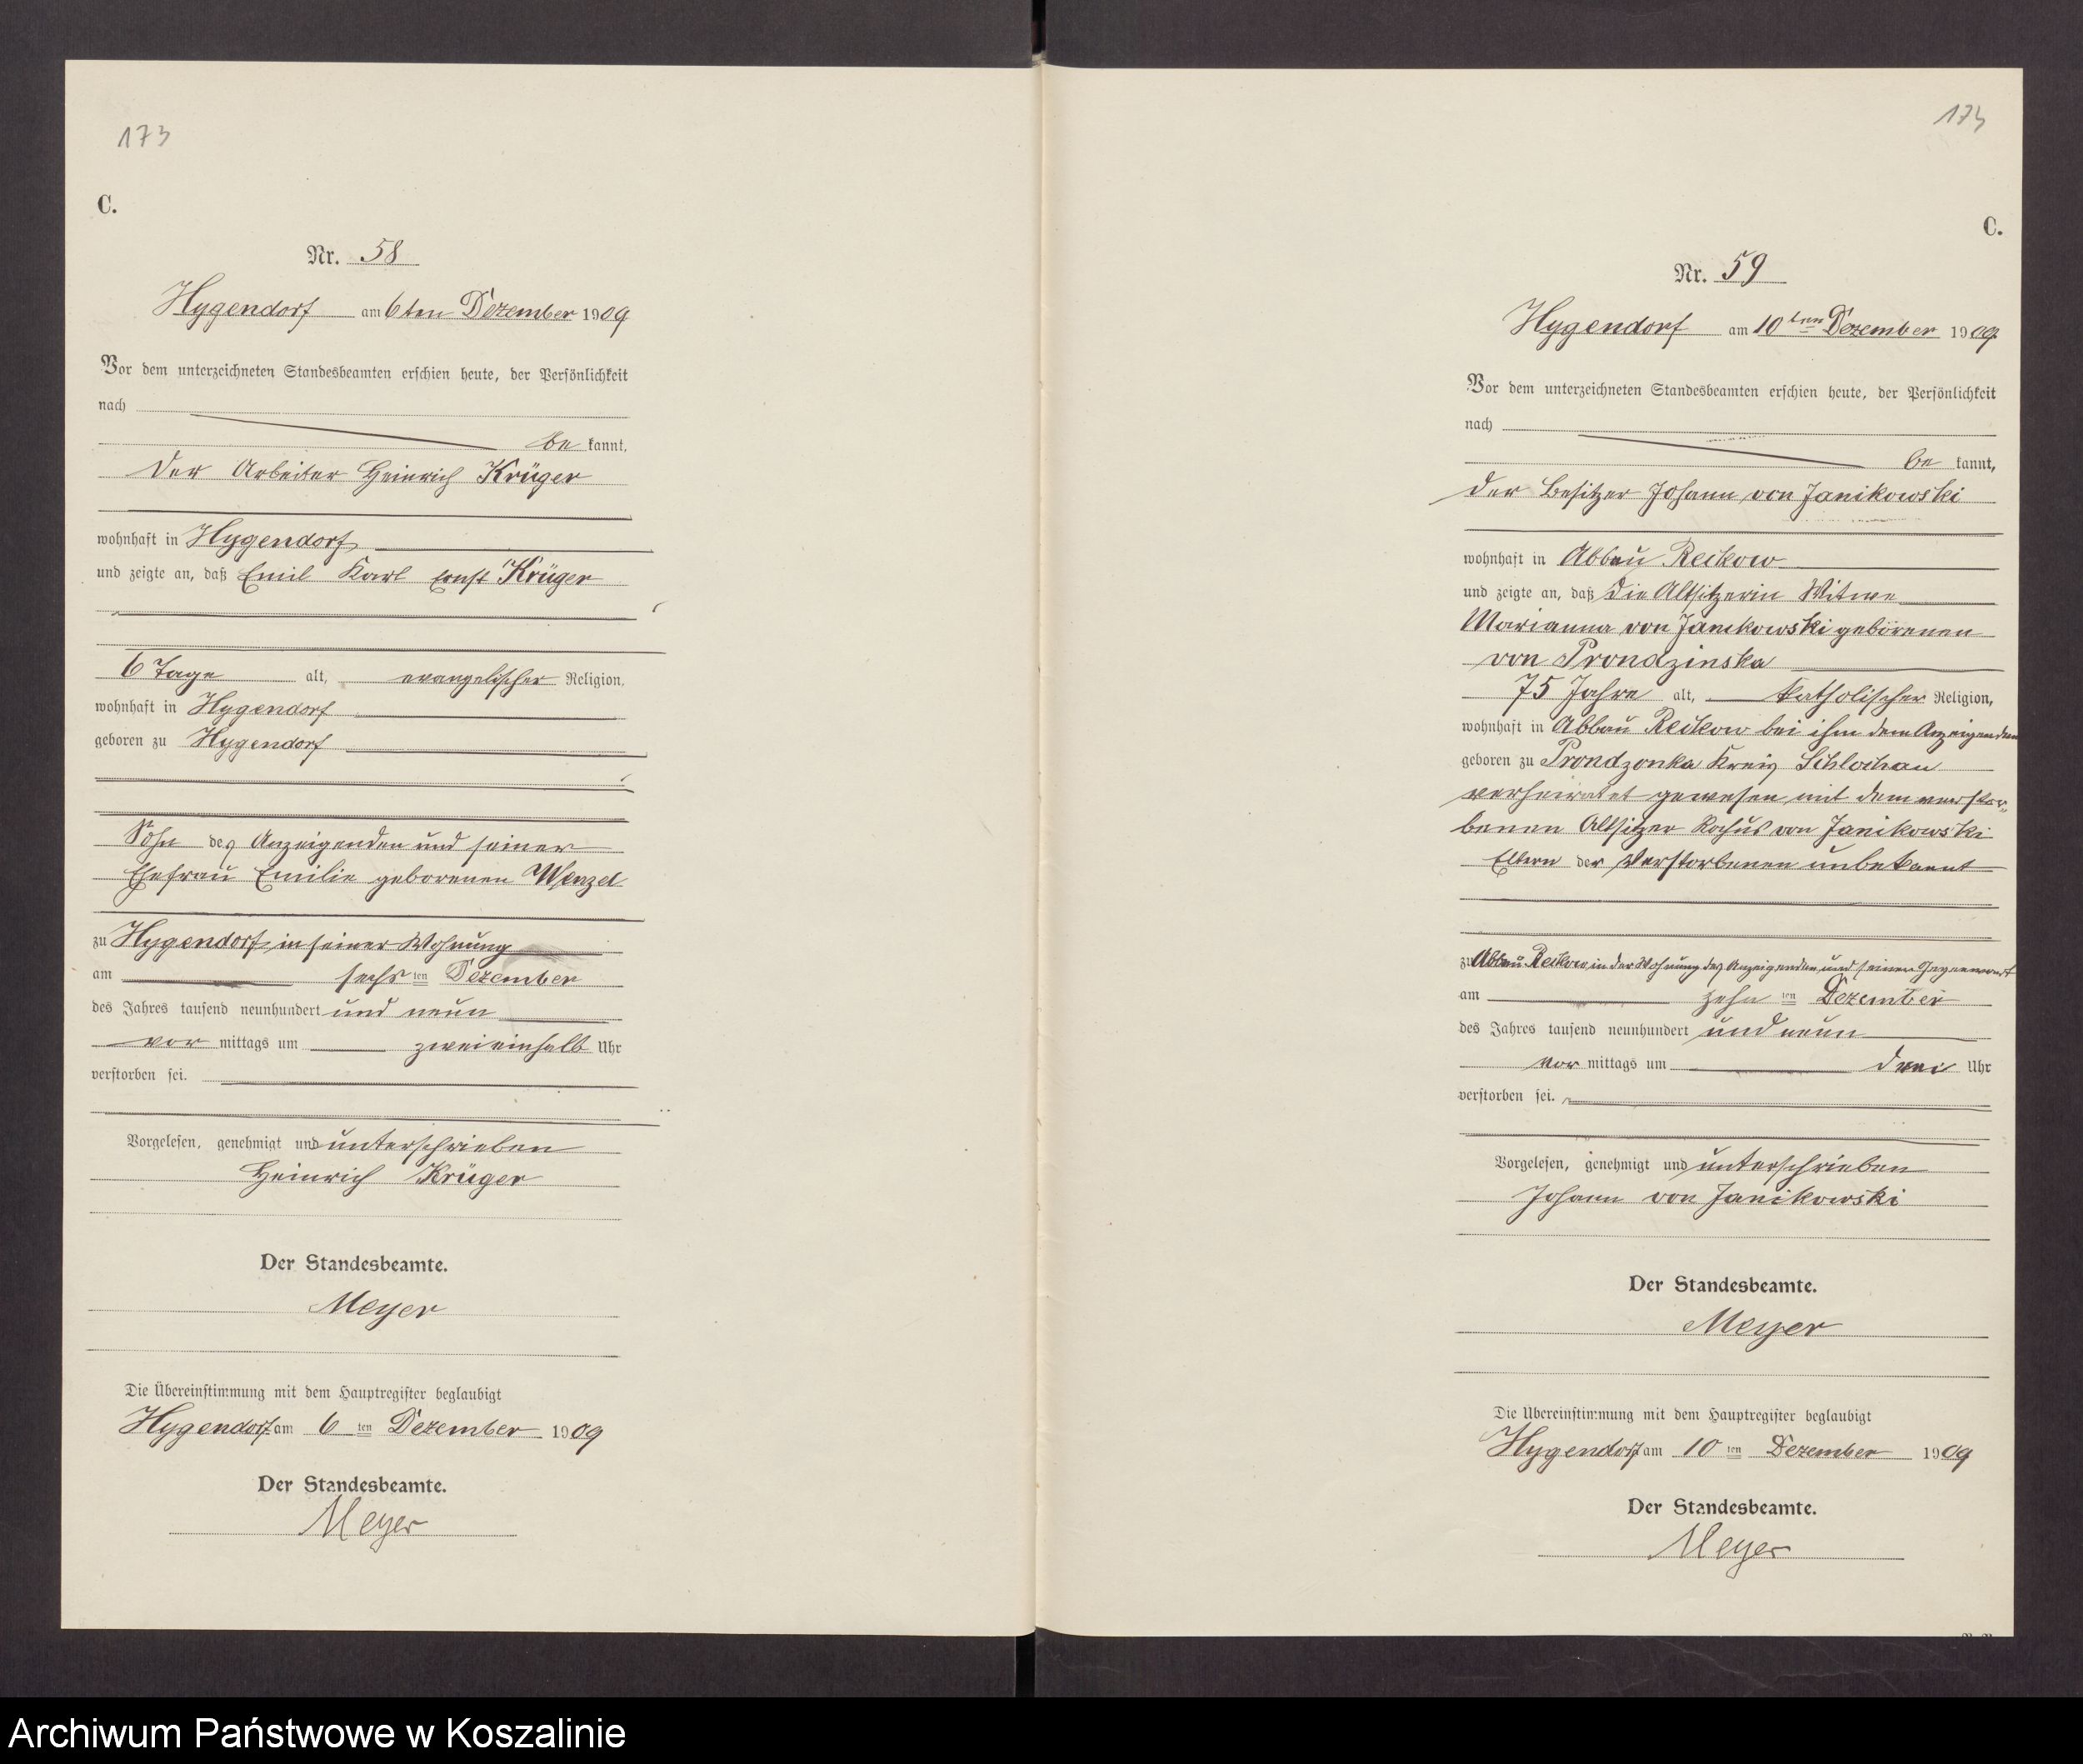 173
C.
Nr. 58
Hygendorf am 6ten Dezember 1909
Vor dem unterzeichneten Standesbeamten erschien heute, der Persönlichkeit
nach
be kannt,
der Arbeiter Heinrich Krüger
wohnhaft in Hygendorf,
und zeigte an, daß Emil Karl Ernst Krüger
6 Tage alt, evangelischer Religion,
wohnhaft in Hygendorf
geboren zu Hygendorf
Sohn des Anzeigenden und seiner
Ehefrau Emilie geborenen Wenzel
zu Hygendorf, in seiner Wohnung
am sechs ten Dezember
des Jahres tausend neunhundert und neun
vor mittags um zweieinhalb Uhr
verstorben sei.
Vorgelesen, genehmigt und unterschrieben
Heinrich Krüger
Der Standesbeamte.
Meyer
Die Übereinstimmung mit dem Hauptregister beglaubigt
Hygendorf am 6 ten Dezember 1909
Der Standesbeamte.
Meyer
173
C.
Nr. 59
Hygendorf am 10ten Dezember 1909.
Vor dem unterzeichneten Standesbeamten erschien heute, der Persönlichkeit
nach
be kannt,
der Besitzer Johann von Janikowski
wohnhaft in Abbau Reckow
und zeigte an, daß die Altsitzerin Witwe
Marianna von Janikowski geborenen
von Prondzinska
75 Jahre alt, katholischer Religion,
wohnhaft in Abbau Reckow bei ihm dem Anzeigenden
geboren zu Prondzonka Kreis Schlochau
verheiratet gewesen mit dem verstor-
benen Altsitzer Rochus von Janikowski
Eltern der Verstorbenen unbekannt
zu Abbau Reckow, in der Wohnung des Anzeigenden und seiner Gegenwart
am zehn ten Dezember
des Jahres tausend neunhundert und neun
vor mittags um drei Uhr
verstorben sei.
Vorgelesen, genehmigt und unterschrieben
Johann von Janikowski
Der Standesbeamte.
Meyer
Die Übereinstimmung mit dem Hauptregister beglaubigt
Hygendorf am 10 ten Dezember 1909
Der Standesbeamte.
Meyer
Archiwum Państwowe w Koszalinie